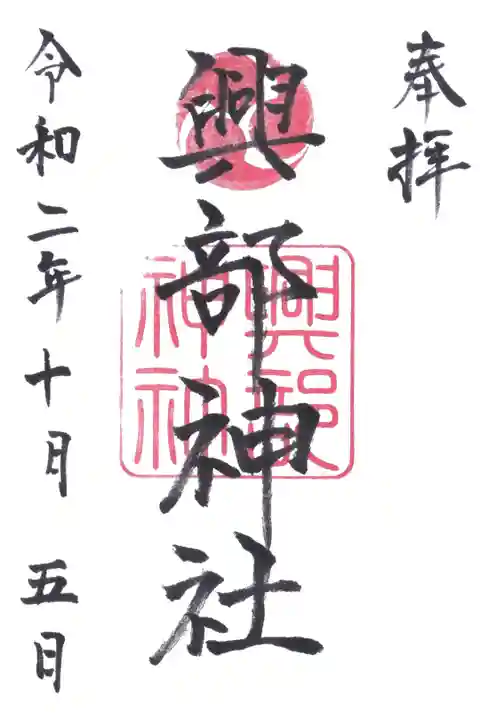 奉拝
興部神社
興部
神社
令和二年十月五日